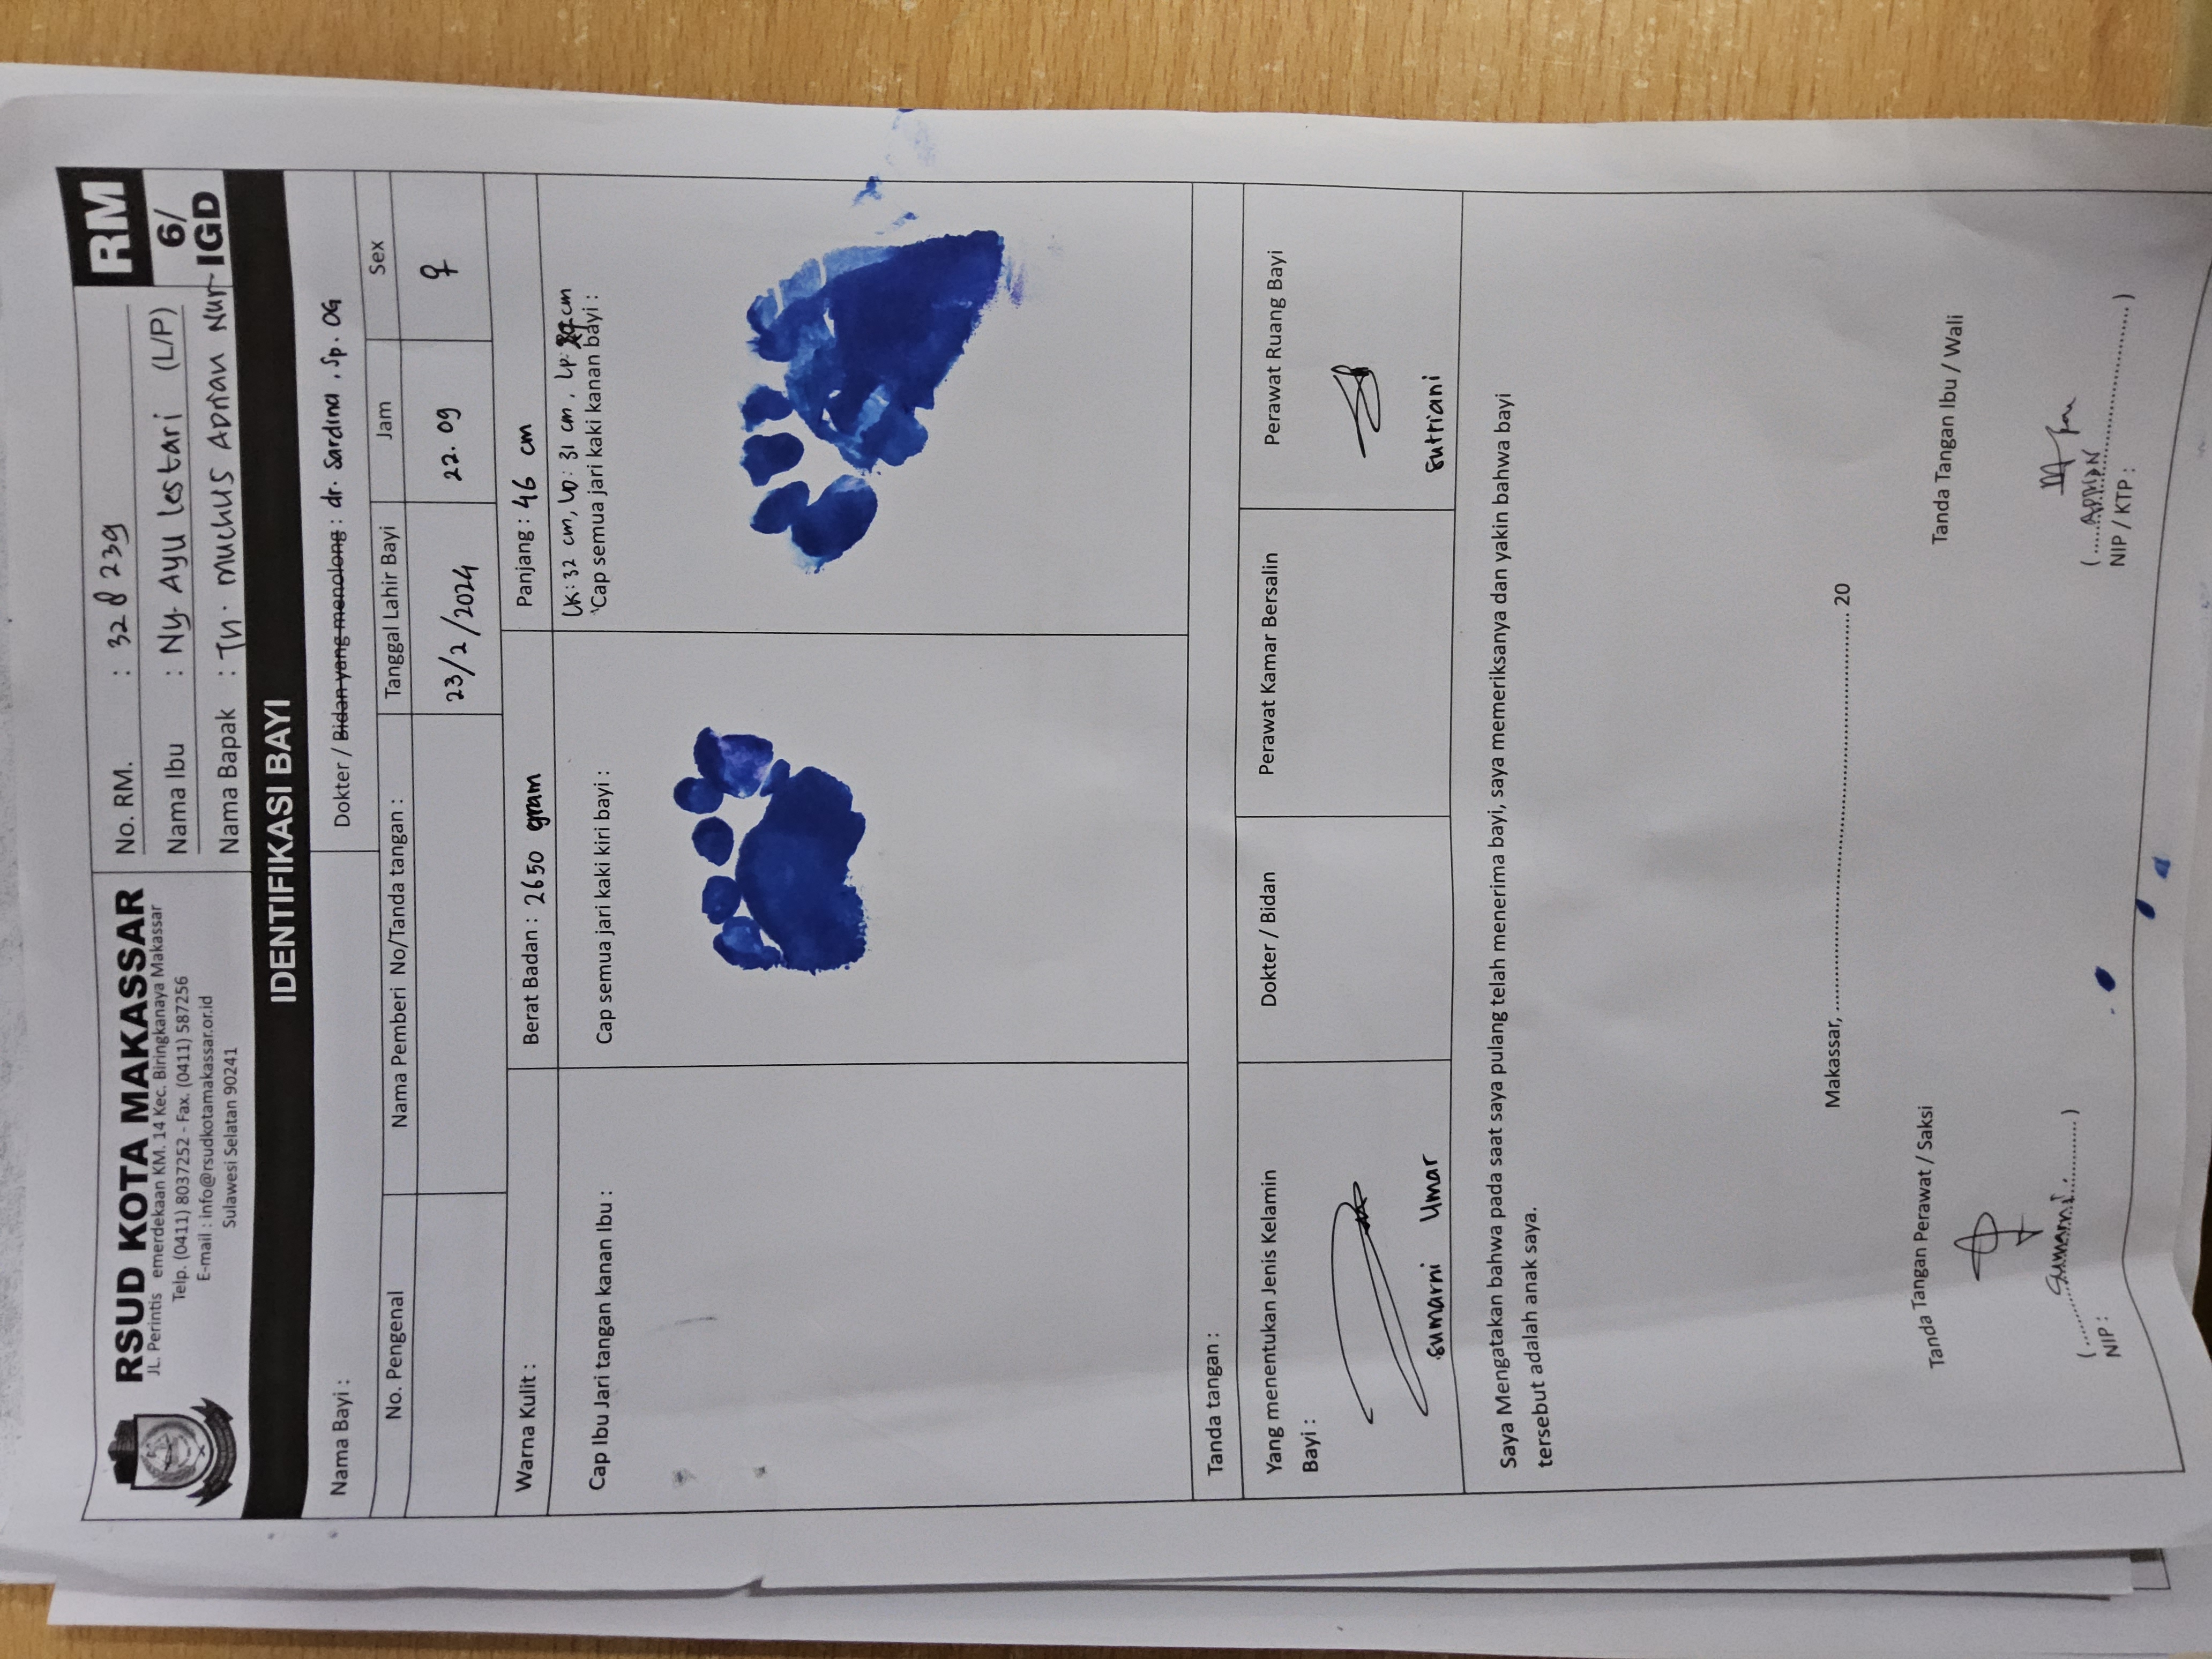 RSUD KOTA MAKASSAR
JL. Perintis emerdekaan KM. 14 Kec. Biringkanaya Makassar
Telp. (0411) 8037252 - Fax. (0411) 587256
E-mail : info@rsudkotamakassar.or.id
Sulawesi Selatan 90241
No. RM. : 328239
Nama Ibu : Ny. Ayu Lestari (L/P)
Nama Bapak : Tn. Muchus Adrian Nur
RM
6/
IGD
IDENTIFIKASI BAYI
Nama Bayi :
Dokter / Bidan yang menolong : dr. Sardina, Sp. OG
No. Pengenal
Nama Pemberi No/Tanda tangan :
Tanggal Lahir Bayi
Jam
Sex
23/2/2024
22.09
♀
Warna Kulit :
Berat Badan : 2650 gram
Panjang : 46 cm
LK: 32 cm, LD: 31 cm, LP: cm
Cap Ibu Jari tangan kanan Ibu :
Cap semua jari kaki kiri bayi :
Cap semua jari kaki kanan bayi :
Tanda tangan :
Yang menentukan Jenis Kelamin
Bayi :
Dokter / Bidan
Perawat Kamar Bersalin
Perawat Ruang Bayi
Sumarni Umar
Sutriani
Saya Mengatakan bahwa pada saat saya pulang telah menerima bayi, saya memeriksanya dan yakin bahwa bayi
tersebut adalah anak saya.
Makassar, ........................ 20
Tanda Tangan Perawat / Saksi
Tanda Tangan Ibu / Wali
(....................)
NIP :
(....................)
NIP / KTP :